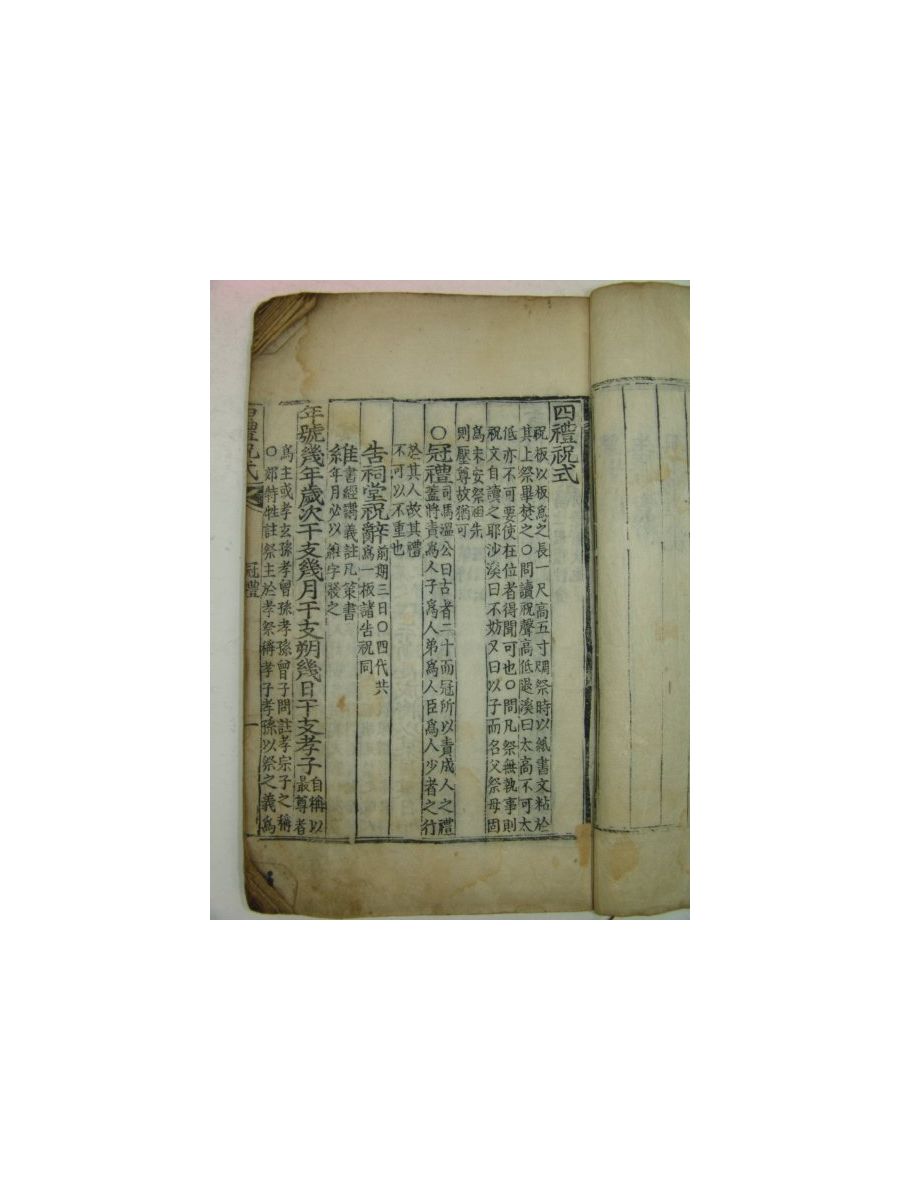 四禮祝式
祝板以板爲之長一尺高五寸用祭時以紙書文粘於
其上祭畢焚之○問讀祝聲高低退溪曰太高不可太
低亦不可要使在位者得聞可也○問凡祭無執事則
祝文自讀之耶沙溪曰不妨又曰以子而名父祭母固
爲未安祭祖先
則壓尊故猶可
○冠禮司馬溫公曰古者二十而冠所以責成人之禮
蓋將責爲人子爲人弟爲人臣爲人少者之行
於其人故其禮
不可以不重也
告祠堂祝辭前期三日○四代共
爲一板諸告祝同
維書經講義註凡策書
年月必以維字發之
年號幾年歲次干支幾月干支朔幾日干支孝子自稱以
最尊者
爲主或孝玄孫孝曾孫孝孫曾子問註孝宗子之稱
○郊特牲註祭主於孝祭稱孝子孝孫以祭之義爲
四禮祝式
冠禮
一